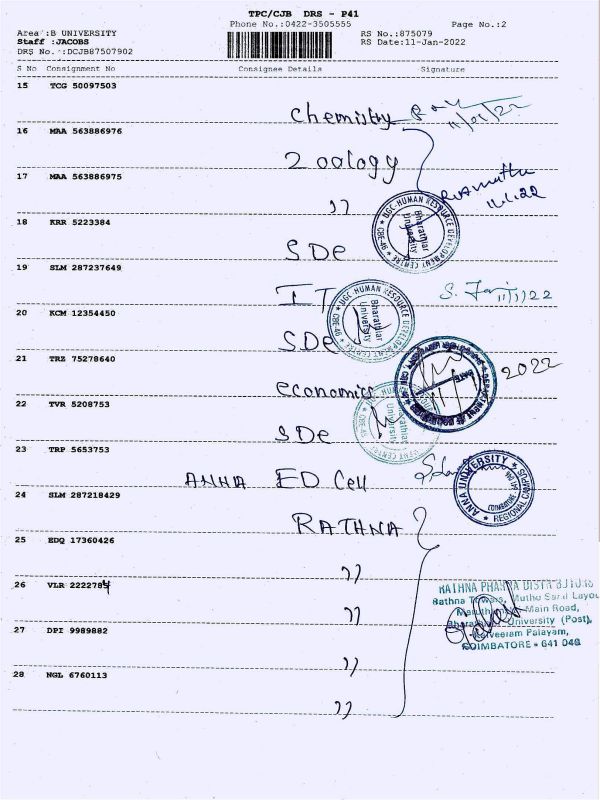 TPC/CJB DRS - P41
Phone No.:0422-3505555
Page No.:2
Area :B UNIVERSITY
Staff :JACOBS
DRS No. :DCJB87507902
RS No.:875079
RS Date:11-Jan-2022
S No Consignment No Consignee Details Signature
15 TCG 50097503
Chemistry 11/01/22
16 MAA 563886976
Zoology
17 MAA 563886975
" 11.1.22
18 KRR 5223384
SDE
19 SLM 287237649
IT S. 11/1/22
20 KCM 12354450
SDE
21 TRZ 75278640
economics 11/1/2022
22 TVR 5208753
SDE
23 TRP 5653753
ANNA ED Cell
24 SLM 287218429
RATHNA
25 EDQ 17360426
"
26 VLR 2222784
"
27 DPI 9989882
"
28 NGL 6760113
"
UGC-HUMAN RESOURCE DEVELOPMENT CENTRE
Bharathiar University
CBE-46
UGC-HUMAN RESOURCE DEVELOPMENT CENTRE
Bharathiar University
CBE-46
Bharathiar University
DATE
ANNA UNIVERSITY
REGIONAL CAMPUS
COIMBATORE
RATHNA PHARMA DISTRIBUTORS
Rathna Towers, Muthu Layou
Main Road,
Bharathiar University (Post),
Kalveeram Palayam,
COIMBATORE - 641 046